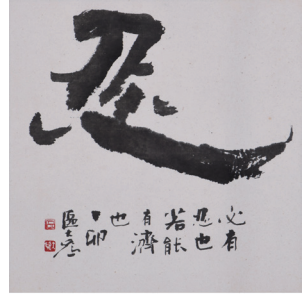 忍
必有
忍也
若能
有濟
也
丁卯